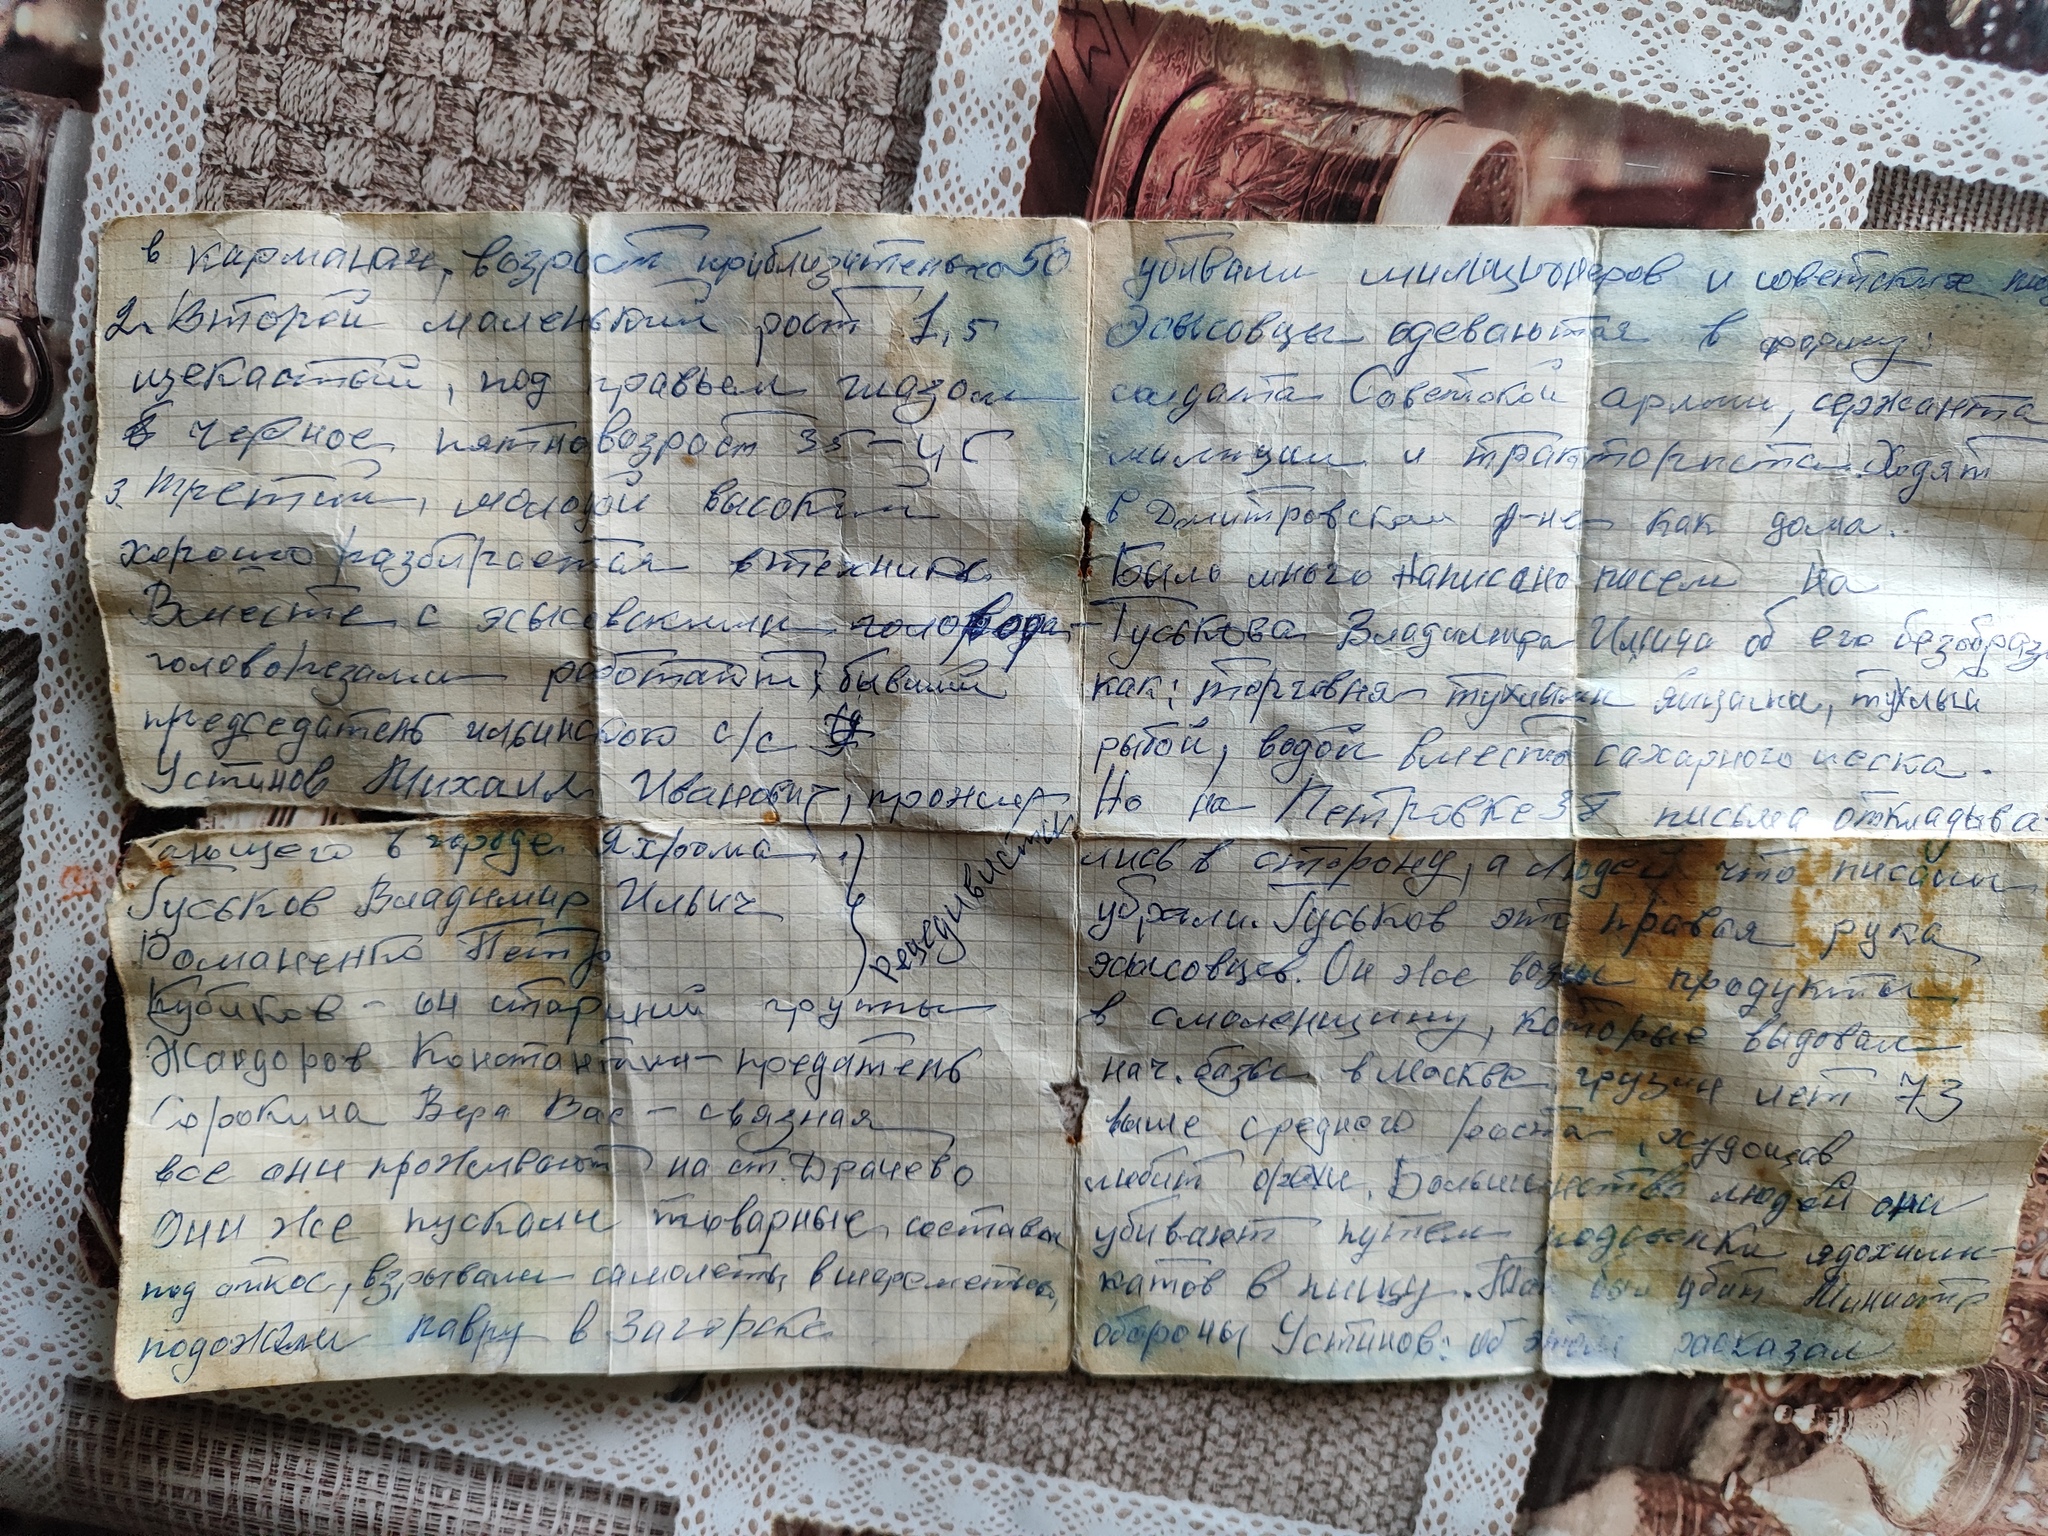 в карманах, возраст приблизительно 50
2. Второй маленький рост 1,5
щекастый, под правым глазом
черное пятно возраст 35-45
3. Третий, молодой высокий
хорошо разбирается в технике
Вместе с эсысовскими
головорезами работают: бывший
председатель ильинского с/с
Устинов Михаил Иванович, прожив
ающего в городе Яхрома
Гуськов Владимир Ильич
Романенко Петр
рецедивисты
Кубиков - он старший группы
Жандоров Константин - предатель
Сорокина Вера Вас - связная
все они проживают на ст. Драчево
Они же пускали товарные составы
под откос, взрывали самолеты в шереметьево,
подожгли лавру в Загорске
убивали милиционеров и советских
Эсысовцы одеваються в форму:
солдата Советской армии, сержанта
милиции и тракториста. Ходят
в Дмитровском р-не как дома.
Было много написано писем на
Гуськова Владимира Ильича об его безобраз
как: торговня тухлыми яйцами, тухлый
рыбой, водой вместо сахарного песка.
Но на Петровке 38 письма откладыва-
лись в сторону, а людей что писали
убрали. Гуськов это правая рука
эсысовцев. Он же возил продукты
в смоленщину, которые выдовал
нач. базы в Москве грузин лет 73
выше среднего роста, худощав
любит орехи. Большинство людей они
убивают путем подсыпки ядохими-
катов в пищу. Так был убит Министр
обороны Устинов: об этом расказал